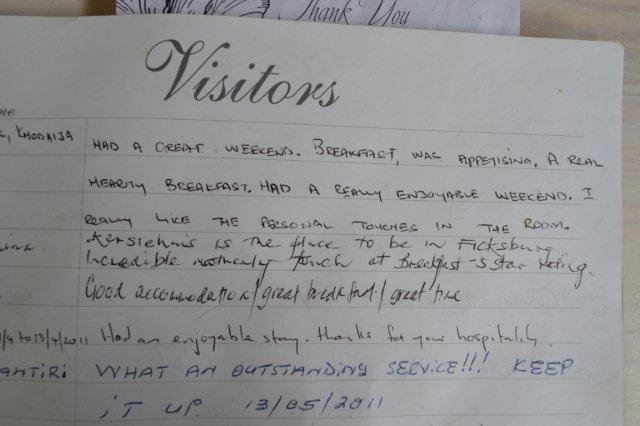 Thank You
Visitors
me
, KHODAIJA HAD A GREAT WEEKEND. BREAKFAST, WAS APPETISING. A REAL
HEARTY BREAKFAST. HAD A REALLY ENJOYABLE WEEKEND. I
REALLY LIKE THE PERSONAL TOUCHES IN THE ROOM.
is the place to be in Ficksburg
Incredible motherly touch at Breakfast - 5 Star Rating.
Good accommodation / great breakfast / great time
/4 to 13/4/2011 Had an enjoyable stay. thanks for your hospitality.
ANTIRI WHAT AN OUTSTANDING SERVICE!!! KEEP
IT UP. 13/05/2011